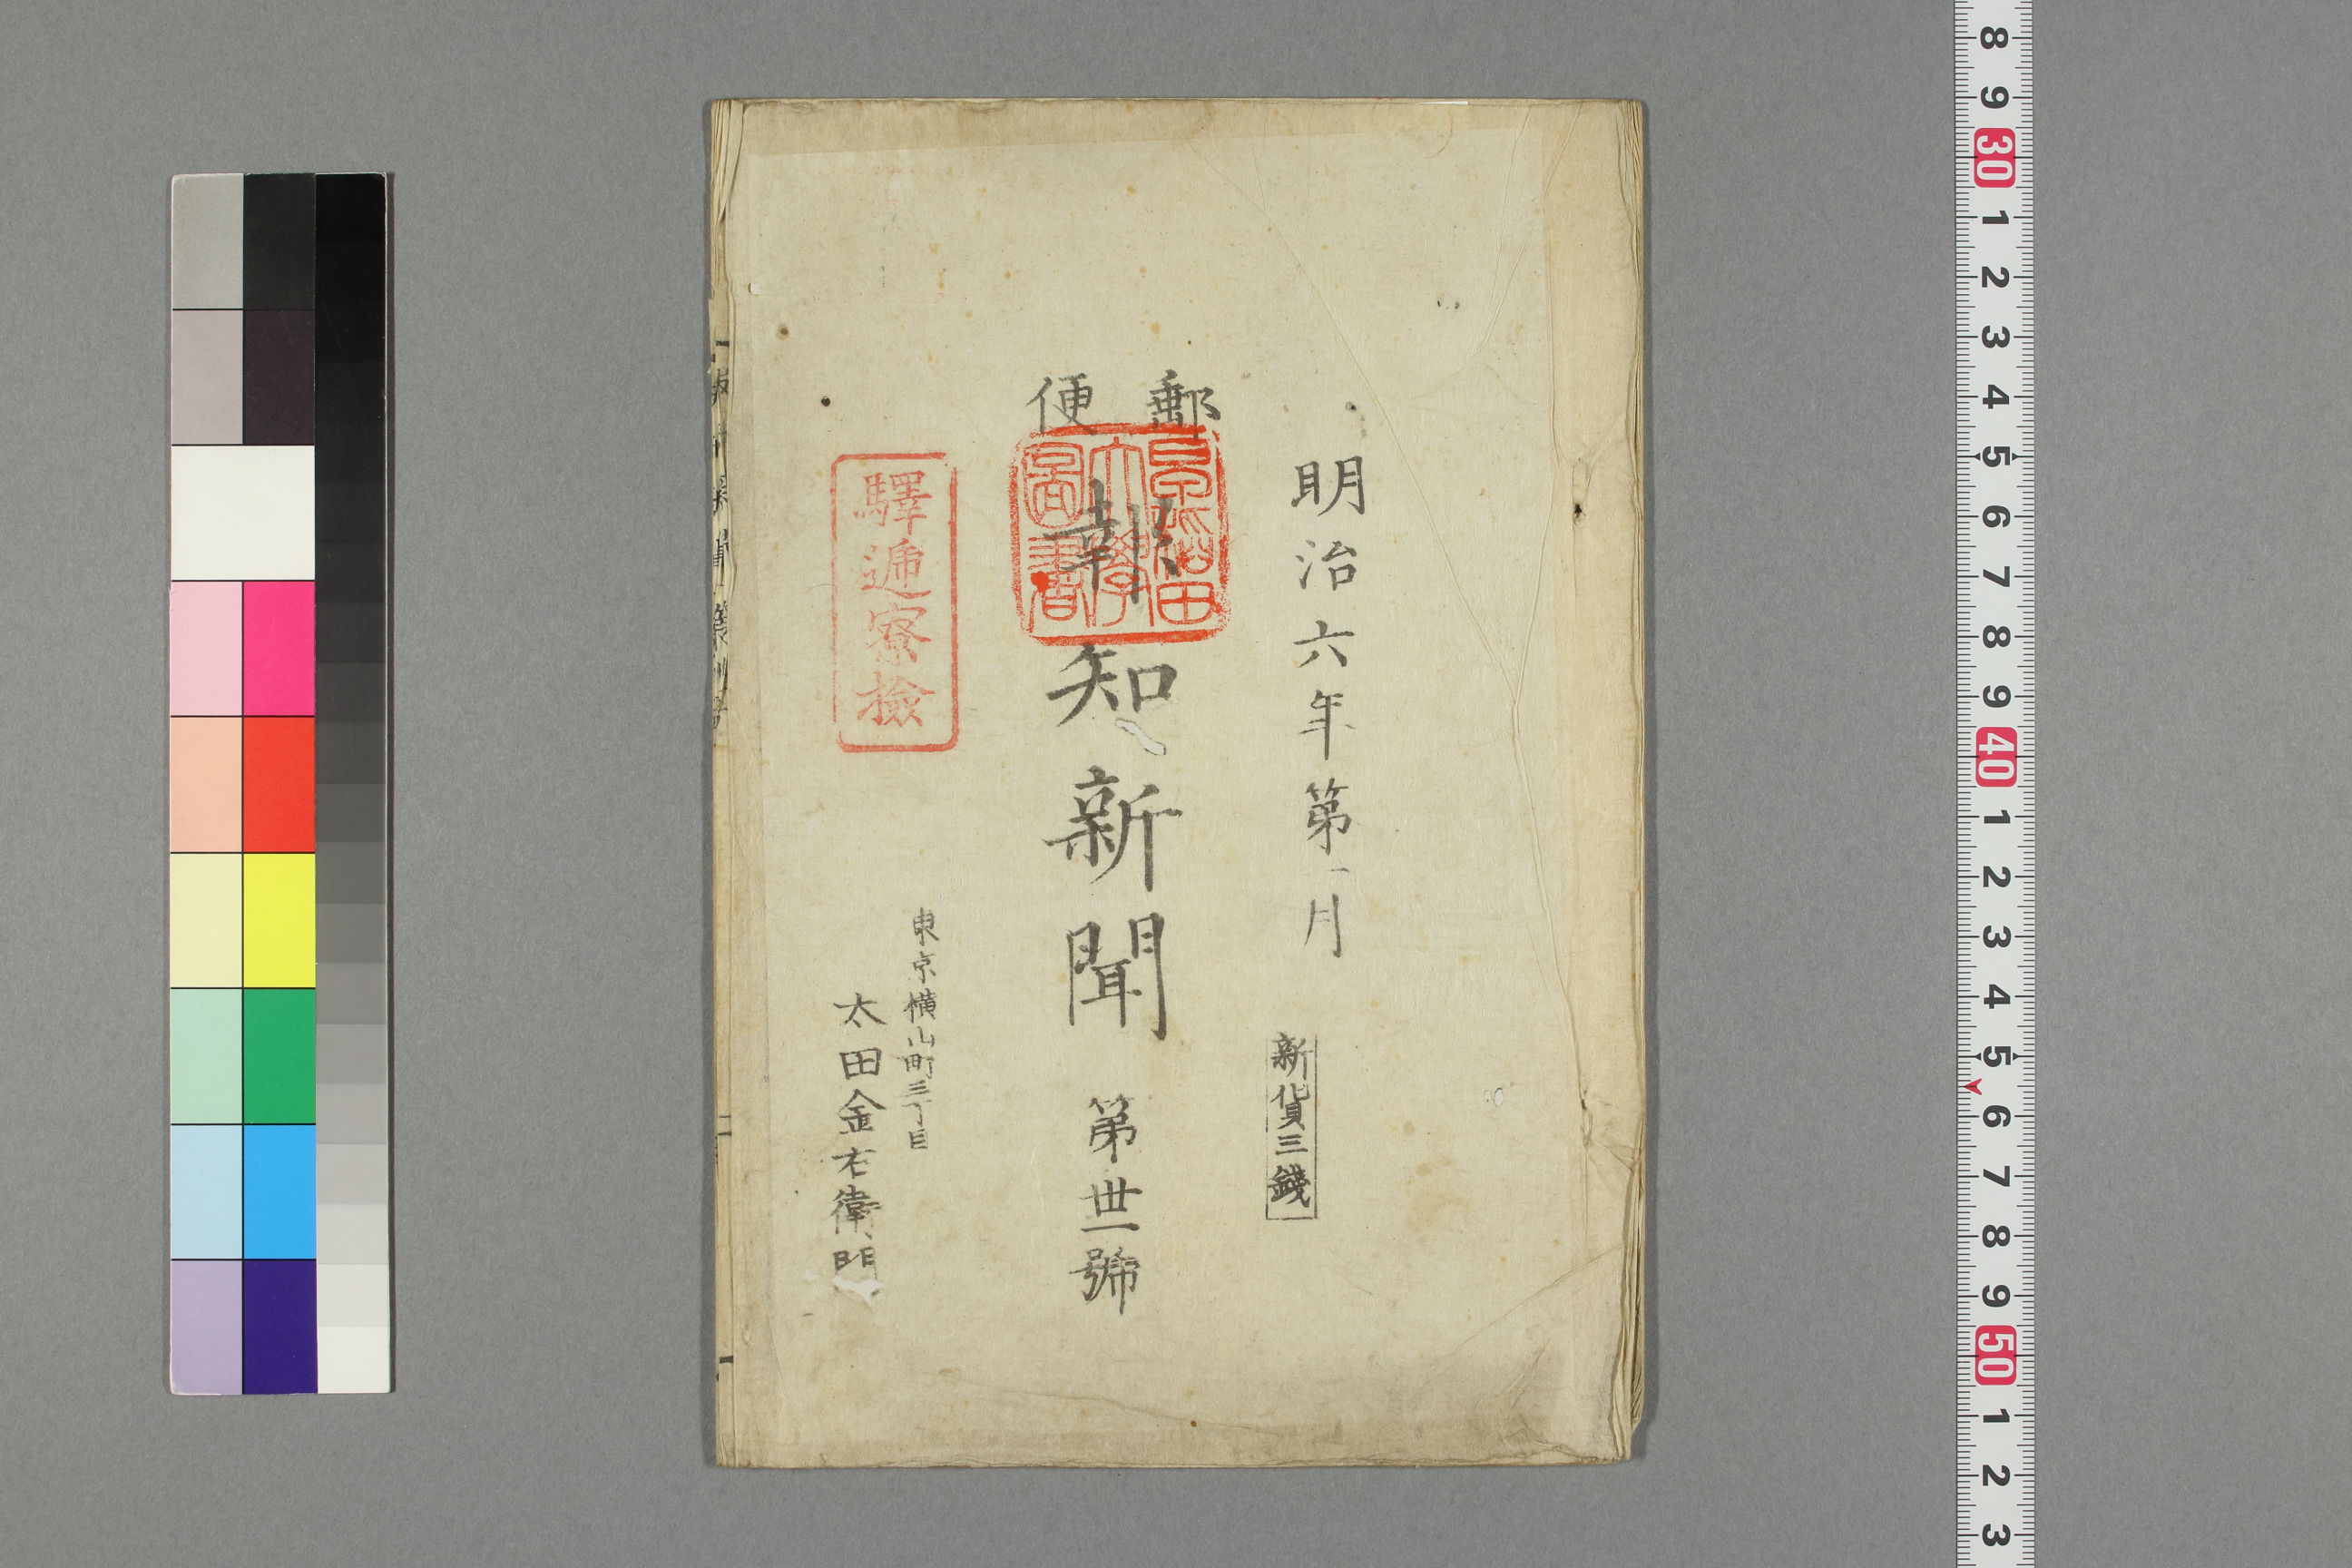 明治六年第一月
新貨三錢
郵便
報知新聞
第丗一號
早稲田大學圖書
驛遞寮檢
東京橫山町三丁目
太田金右衛門
8
9
30
1
2
3
4
5
6
7
8
9
40
1
2
3
4
5
6
7
8
9
50
1
2
3